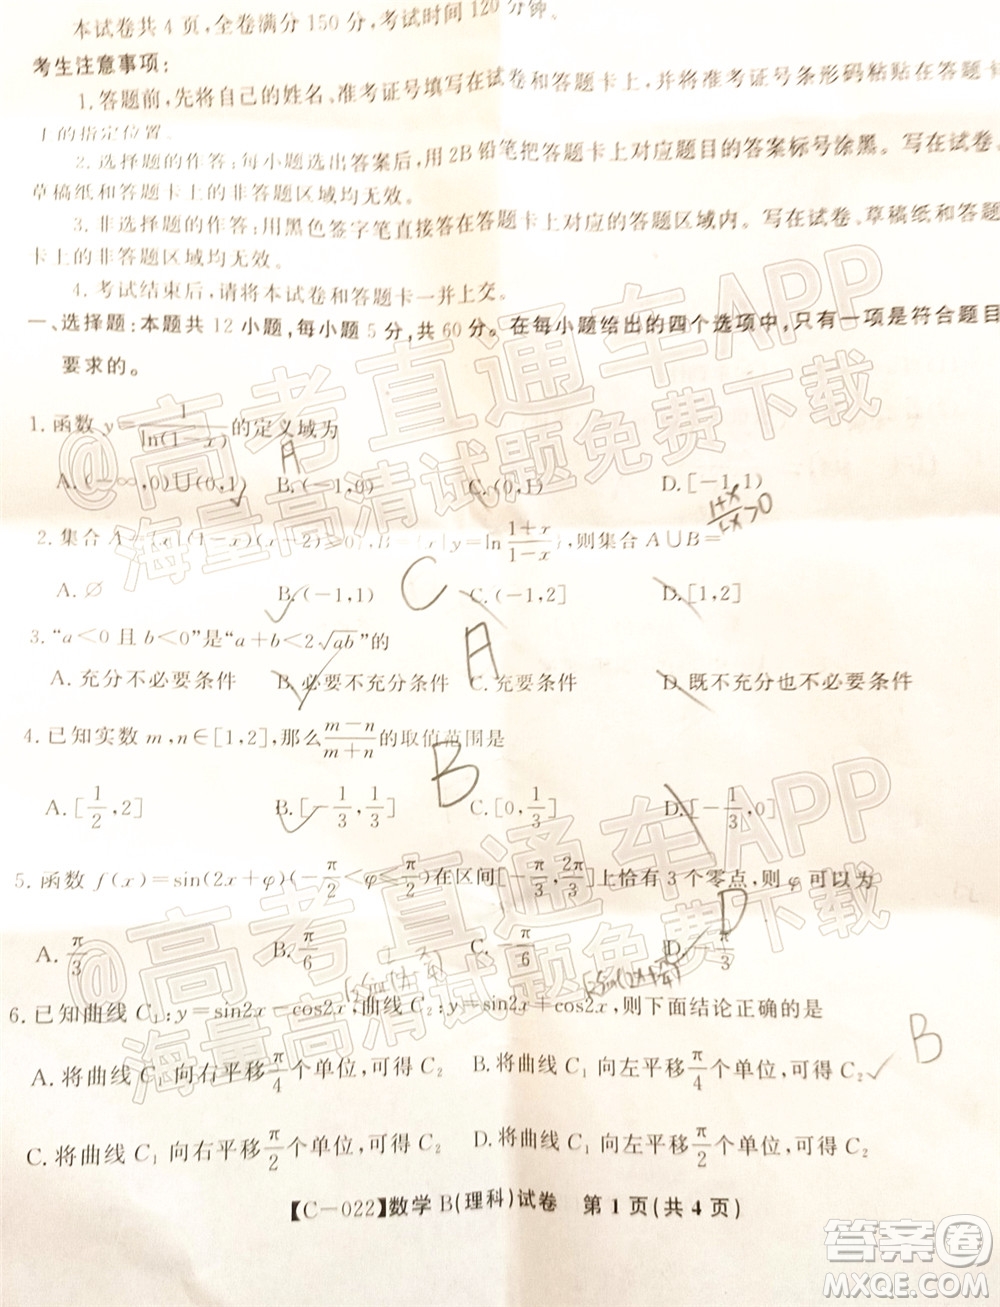 本试卷共4页,全卷满分150分,考试时间120分钟。
考生注意事项:
1.答题前,先将自己的姓名、准考证号填写在试卷和答题卡上,并将准考证号条形码粘贴在答题卡
上的指定位置。
2.选择题的作答:每小题选出答案后,用2B铅笔把答题卡上对应题目的答案标号涂黑。写在试卷、
草稿纸和答题卡上的非答题区域均无效。
3.非选择题的作答:用黑色签字笔直接答在答题卡上对应的答题区域内。写在试卷、草稿纸和答题
卡上的非答题区域均无效。
4.考试结束后,请将本试卷和答题卡一并上交。
一、选择题:本题共12小题,每小题5分,共60分。在每小题给出的四个选项中,只有一项是符合题目
要求的。
1.函数 y=1/ln(1-x)的定义域为 A
A.(-∞,0)∪(0,1) B.(-1,0) C.(0,1) D.[-1,1)
(1+x)/(1-x)>0
2.集合A={x|(1-x)(x-2)≥0},B={x|y=ln (1+x)/(1-x)},则集合A∪B=
A.∅ B.(-1,1) C C.(-1,2] D.[1,2]
3.“a<0且b<0”是“a+b<2√ab”的 A
A.充分不必要条件 B.必要不充分条件 C.充要条件 D.既不充分也不必要条件
4.已知实数m,n∈[1,2],那么(m-n)/(m+n)的取值范围是
B
A.[1/2,2] B.[-1/3,1/3] C.[0,1/3] D.[-1/3,0]
5.函数 f(x)=sin(2x+φ)(-π/2<φ≤π/2)在区间[-π/3,2π/3]上恰有3个零点,则φ可以为
D
A.π/3 B.π/6 C.-π/6 D.-π/3
6.已知曲线C₁:y=sin2x-cos2x,曲线C₂:y=sin2x+cos2x,则下面结论正确的是
B
A.将曲线C₁向右平移π/4个单位,可得C₂ B.将曲线C₁向左平移π/4个单位,可得C₂
C.将曲线C₁向右平移π/2个单位,可得C₂ D.将曲线C₁向左平移π/2个单位,可得C₂
【C-022】数学B(理科)试卷 第1页(共4页)
@高考直通车APP
海量高清试题免费下载
@高考直通车APP
海量高清试题免费下载
答案卷
MXQE.COM